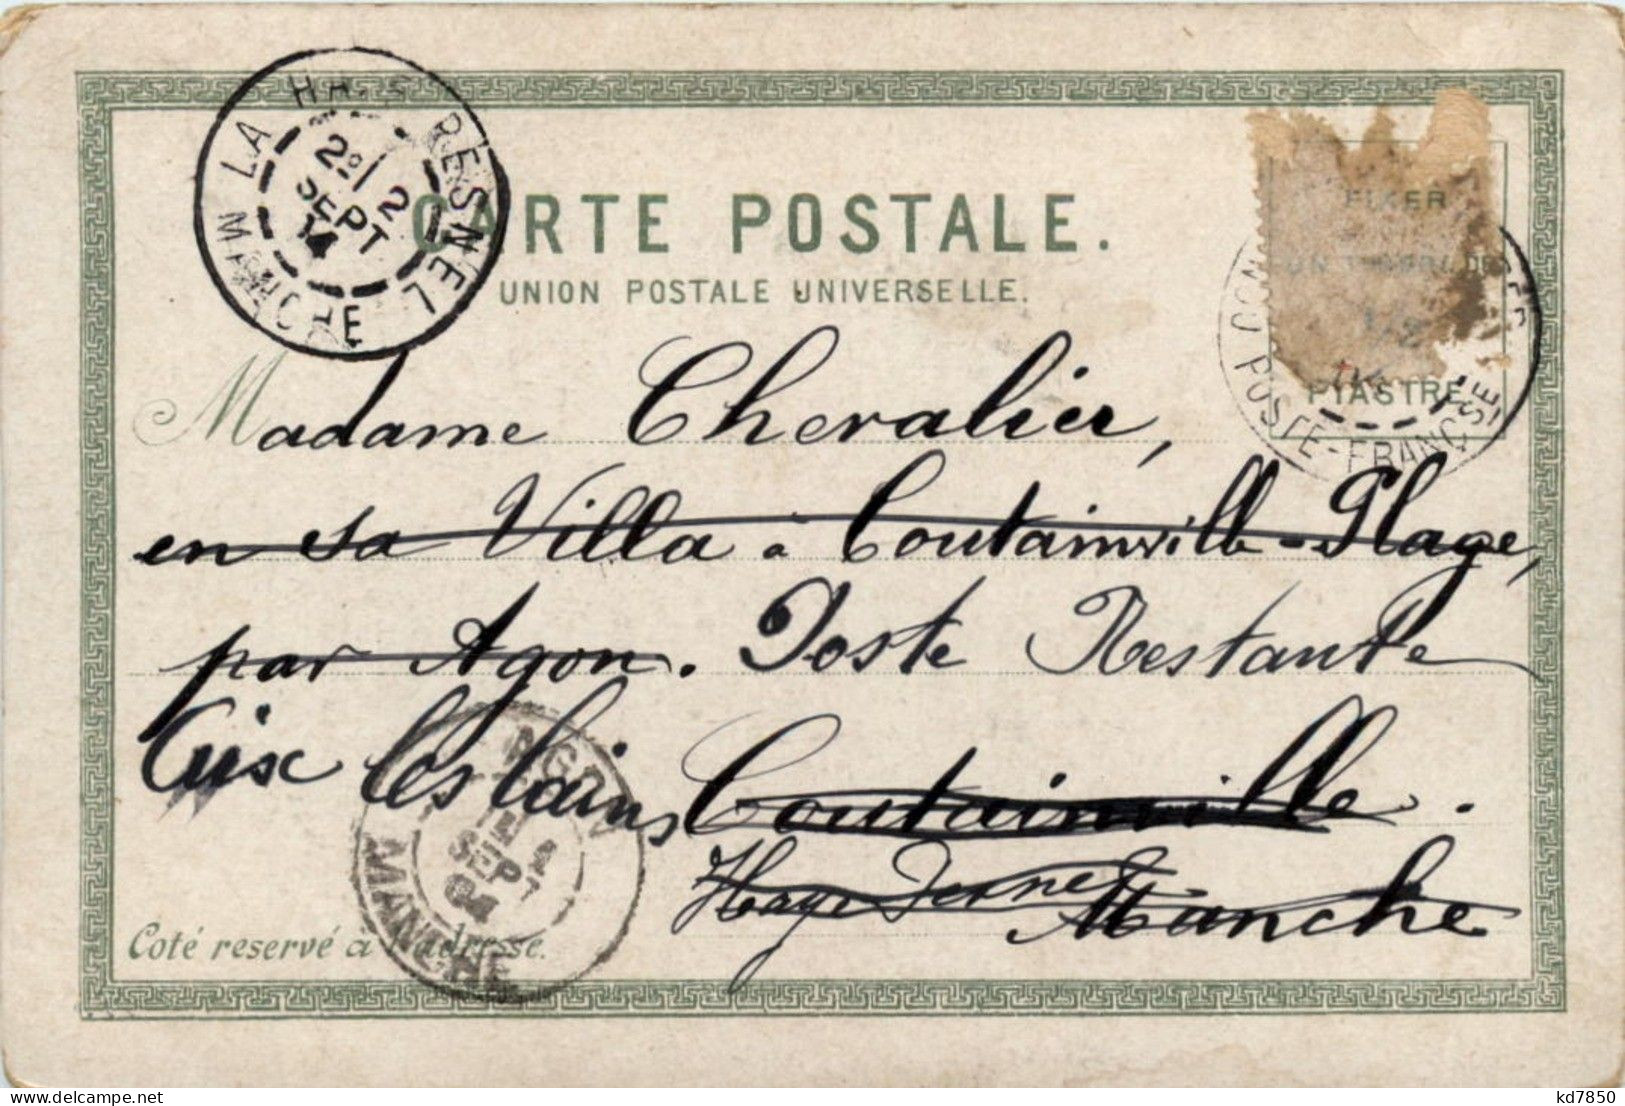 LA HAYE-PESNEL
2E / 2
SEPT
MANCHE
CARTE POSTALE.
UNION POSTALE UNIVERSELLE.
FIXER
UN TIMBRE DE
1/2
PIASTRE
POSTE-FRANÇSE
Madame Chevalier,
en sa Villa à Coutainville-Plage,
par Agon. Poste Restante
Aix les bains Coutainville.
Haye Pesnel Manche
AGON
SEPT
04
MANCHE
Coté reservé à l'adresse.
kd7850